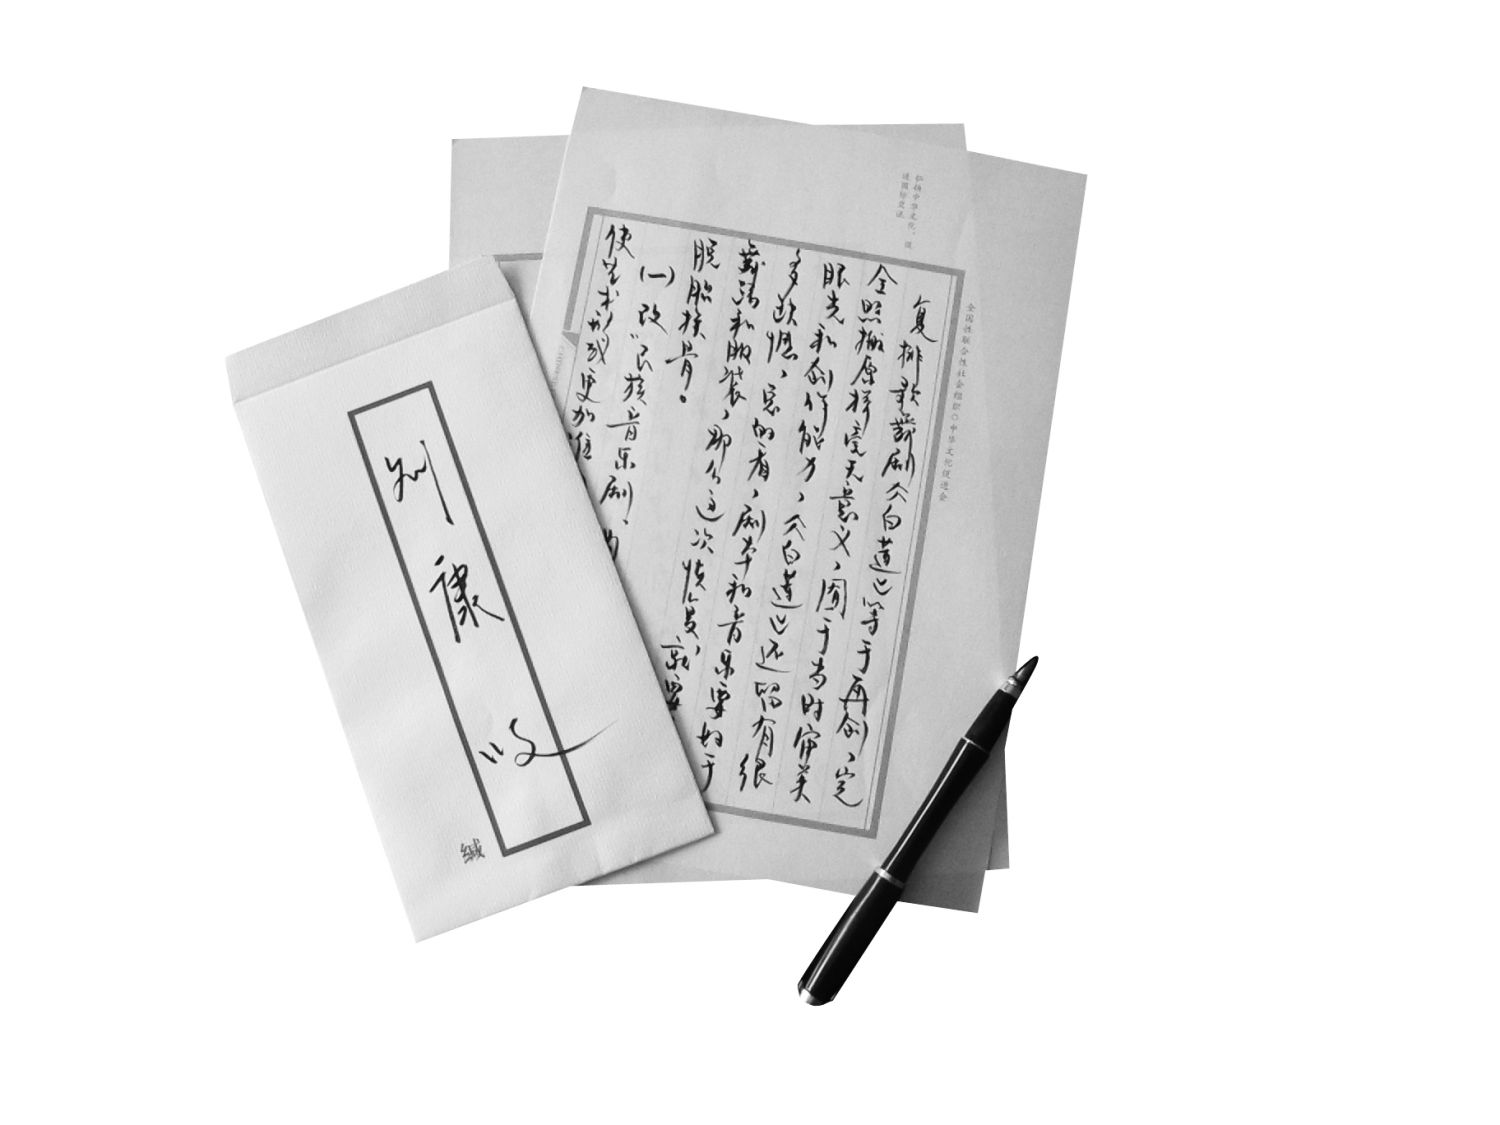 弘扬中华文化，促
进国际交流
全国性联合性社会组织○中华文化促进会
复排歌舞剧《白莲》等于再创，完
全照搬原样毫无意义，囿于当时审美
眼光和创作能力，《白莲》还留有很
多遗憾，总的看，剧本和音乐要好于
舞蹈和服装，那么这次恢复，就要
脱胎换骨。
(一)改“民族音乐剧，为
使艺术形式更加准
缄